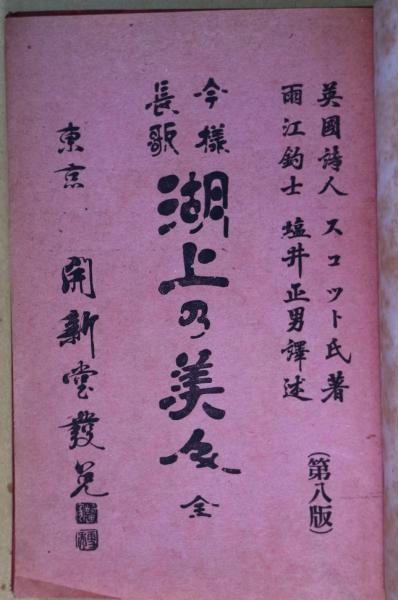 英國詩人 スコット氏著
雨江釣士 塩井正男譯述
(第八版)
今様
長歌
湖上の美人 全
東京 開新堂發兌